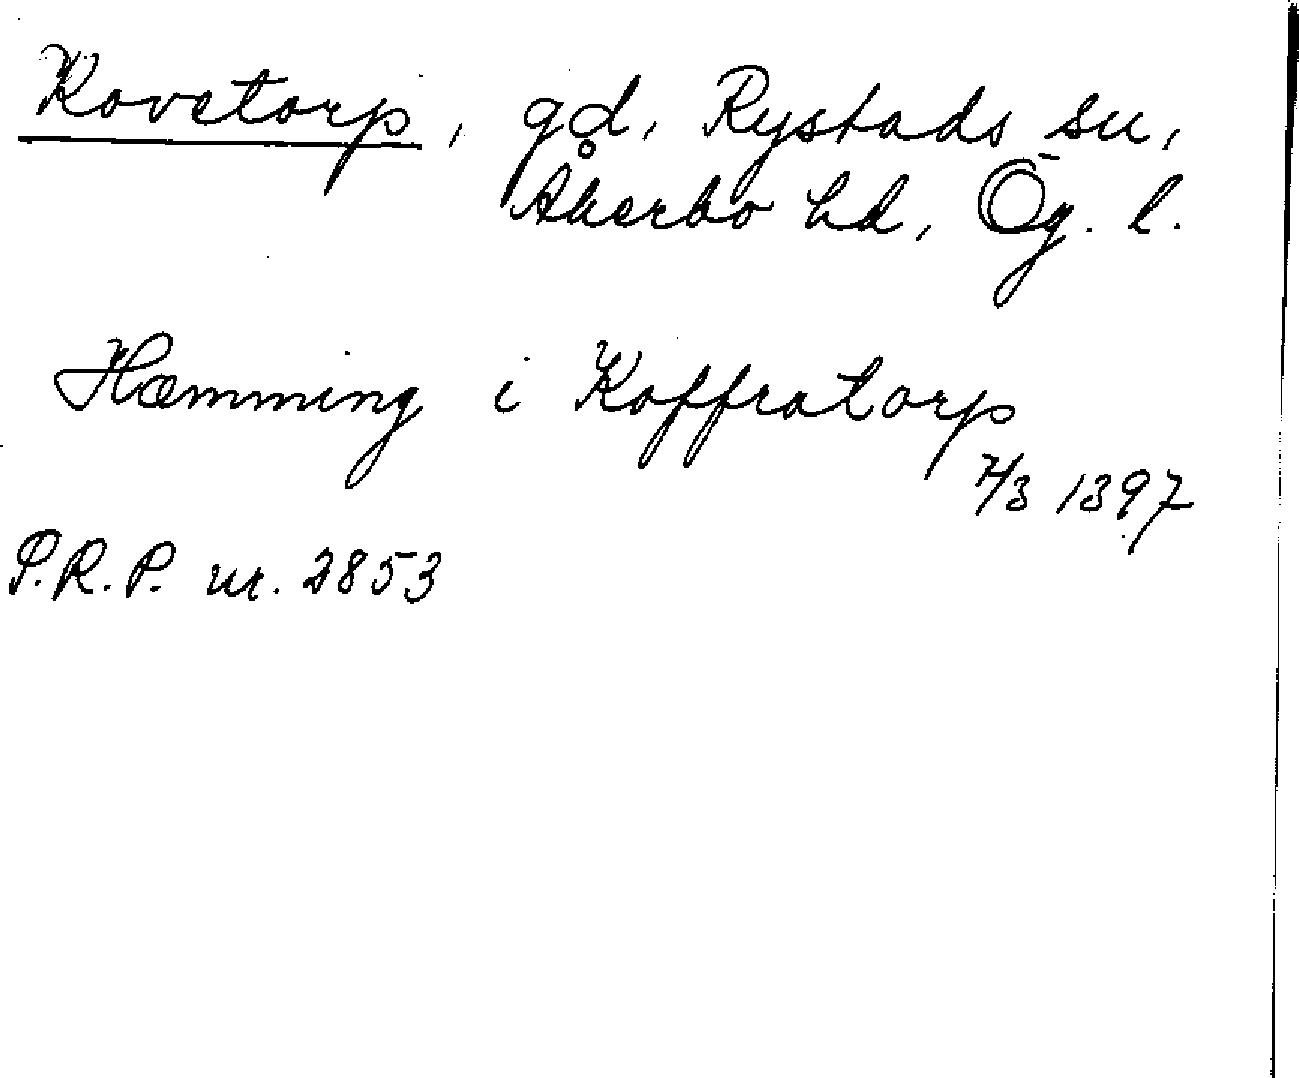 Kovetorp, gd, Rystads sn,
Åkerbo hd, Ög. l.
Hæmming i Koffratorp
7/3 1397
P.R.P. nr. 2853